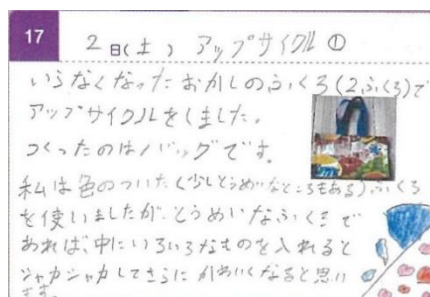 17
2日(土) アップサイクル①
いらなくなったおかしのふくろ(2ふくろ)で
アップサイクルをしました。
つくったのはバッグです。
私は色のついた(少しとうめいなところもある)ふくろ
を使いましたが、とうめいなふくろで
あれば、中にいろいろなものを入れると
シャカシャカしてさらにかわいくなると思い
ます。